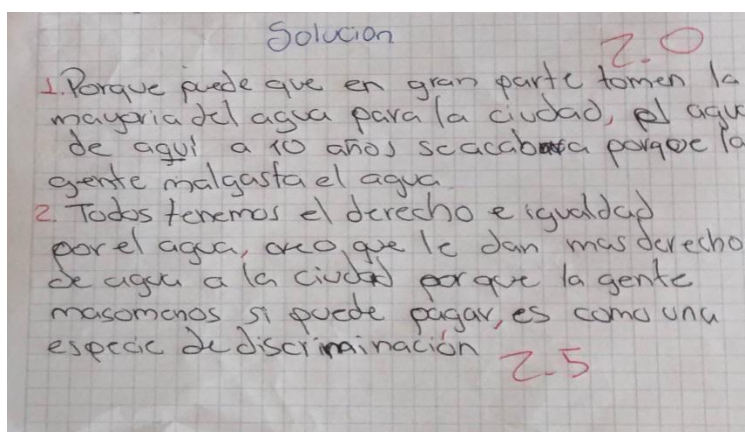 Solucion
2.0
1. Porque puede que en gran parte tomen la
mayoria del agua para la ciudad, el agua
de aquí a 10 años se acabara porqoe la
gente malgasta el agua
2. Todos tenemos el derecho e igualdad
por el agua, creo que le dan mas derecho
de agua a la ciudad porque la gente
masomenos si puede pagar, es como una
especie de discriminación
2.5